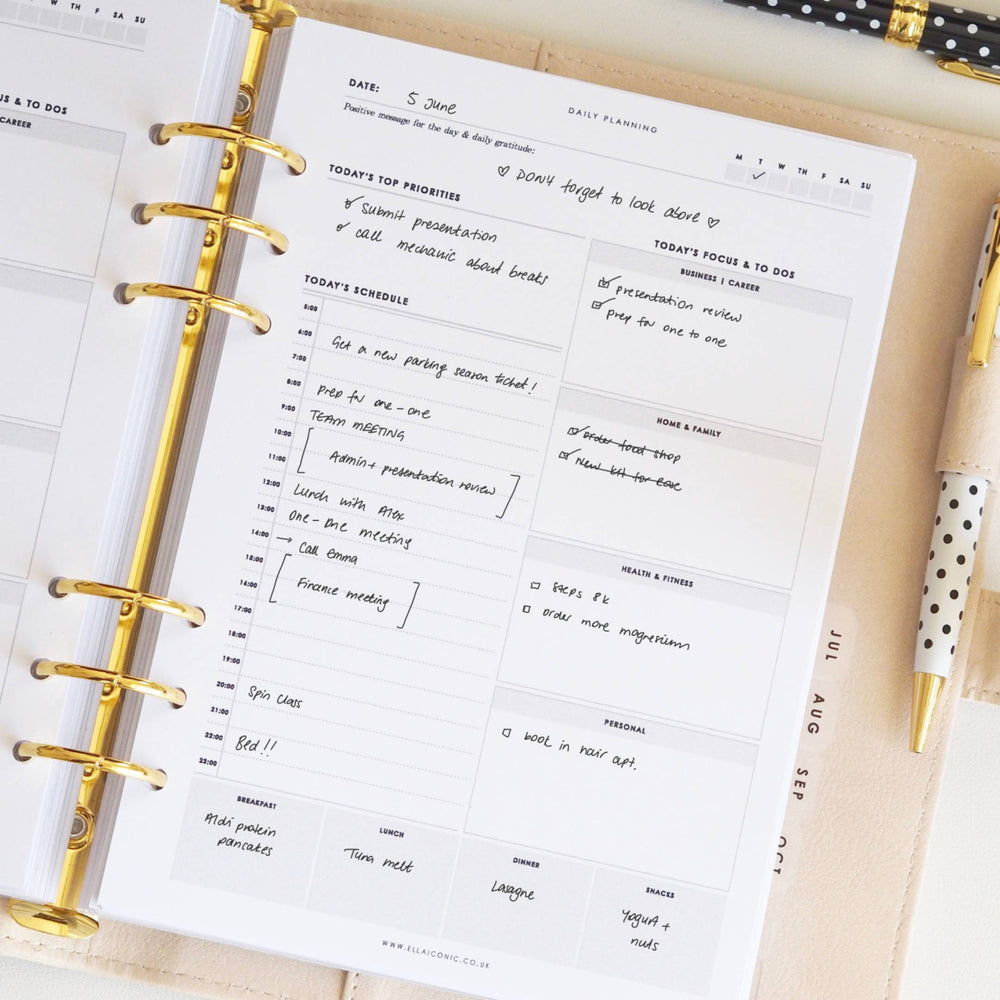 TH F SA SU
US & TO DOS
CAREER
DATE: 5 June
DAILY PLANNING
Positive message for the day & daily gratitude:
♡ DON4 forget to look above ♡
M T W TH F SA SU
✓
TODAY'S TOP PRIORITIES
Submit presentation
call mechanic about breaks
TODAY'S SCHEDULE
5:00
6:00
Get a new parking season ticket!
7:00
8:00
prep for one-one
9:00
TEAM MEETING
10:00
11:00
Admin + presentation review
12:00
Lunch with Alex
13:00
one-one meeting
14:00
→ Call Emma
15:00
16:00
Finance meeting
17:00
18:00
19:00
20:00
Spin Class
21:00
22:00
Bed!!
23:00
TODAY'S FOCUS & TO DOS
BUSINESS | CAREER
presentation review
prep for one to one
HOME & FAMILY
order food shop
New kit for
HEALTH & FITNESS
steps 8k
order more magnesium
PERSONAL
book in hair apt.
BREAKFAST
Aldi protein
pancakes
LUNCH
Tuna melt
DINNER
Lasagne
SNACKS
Yogurt +
nuts
WWW.ELLAICONIC.CO.UK
JUL
AUG
SEP
OCT